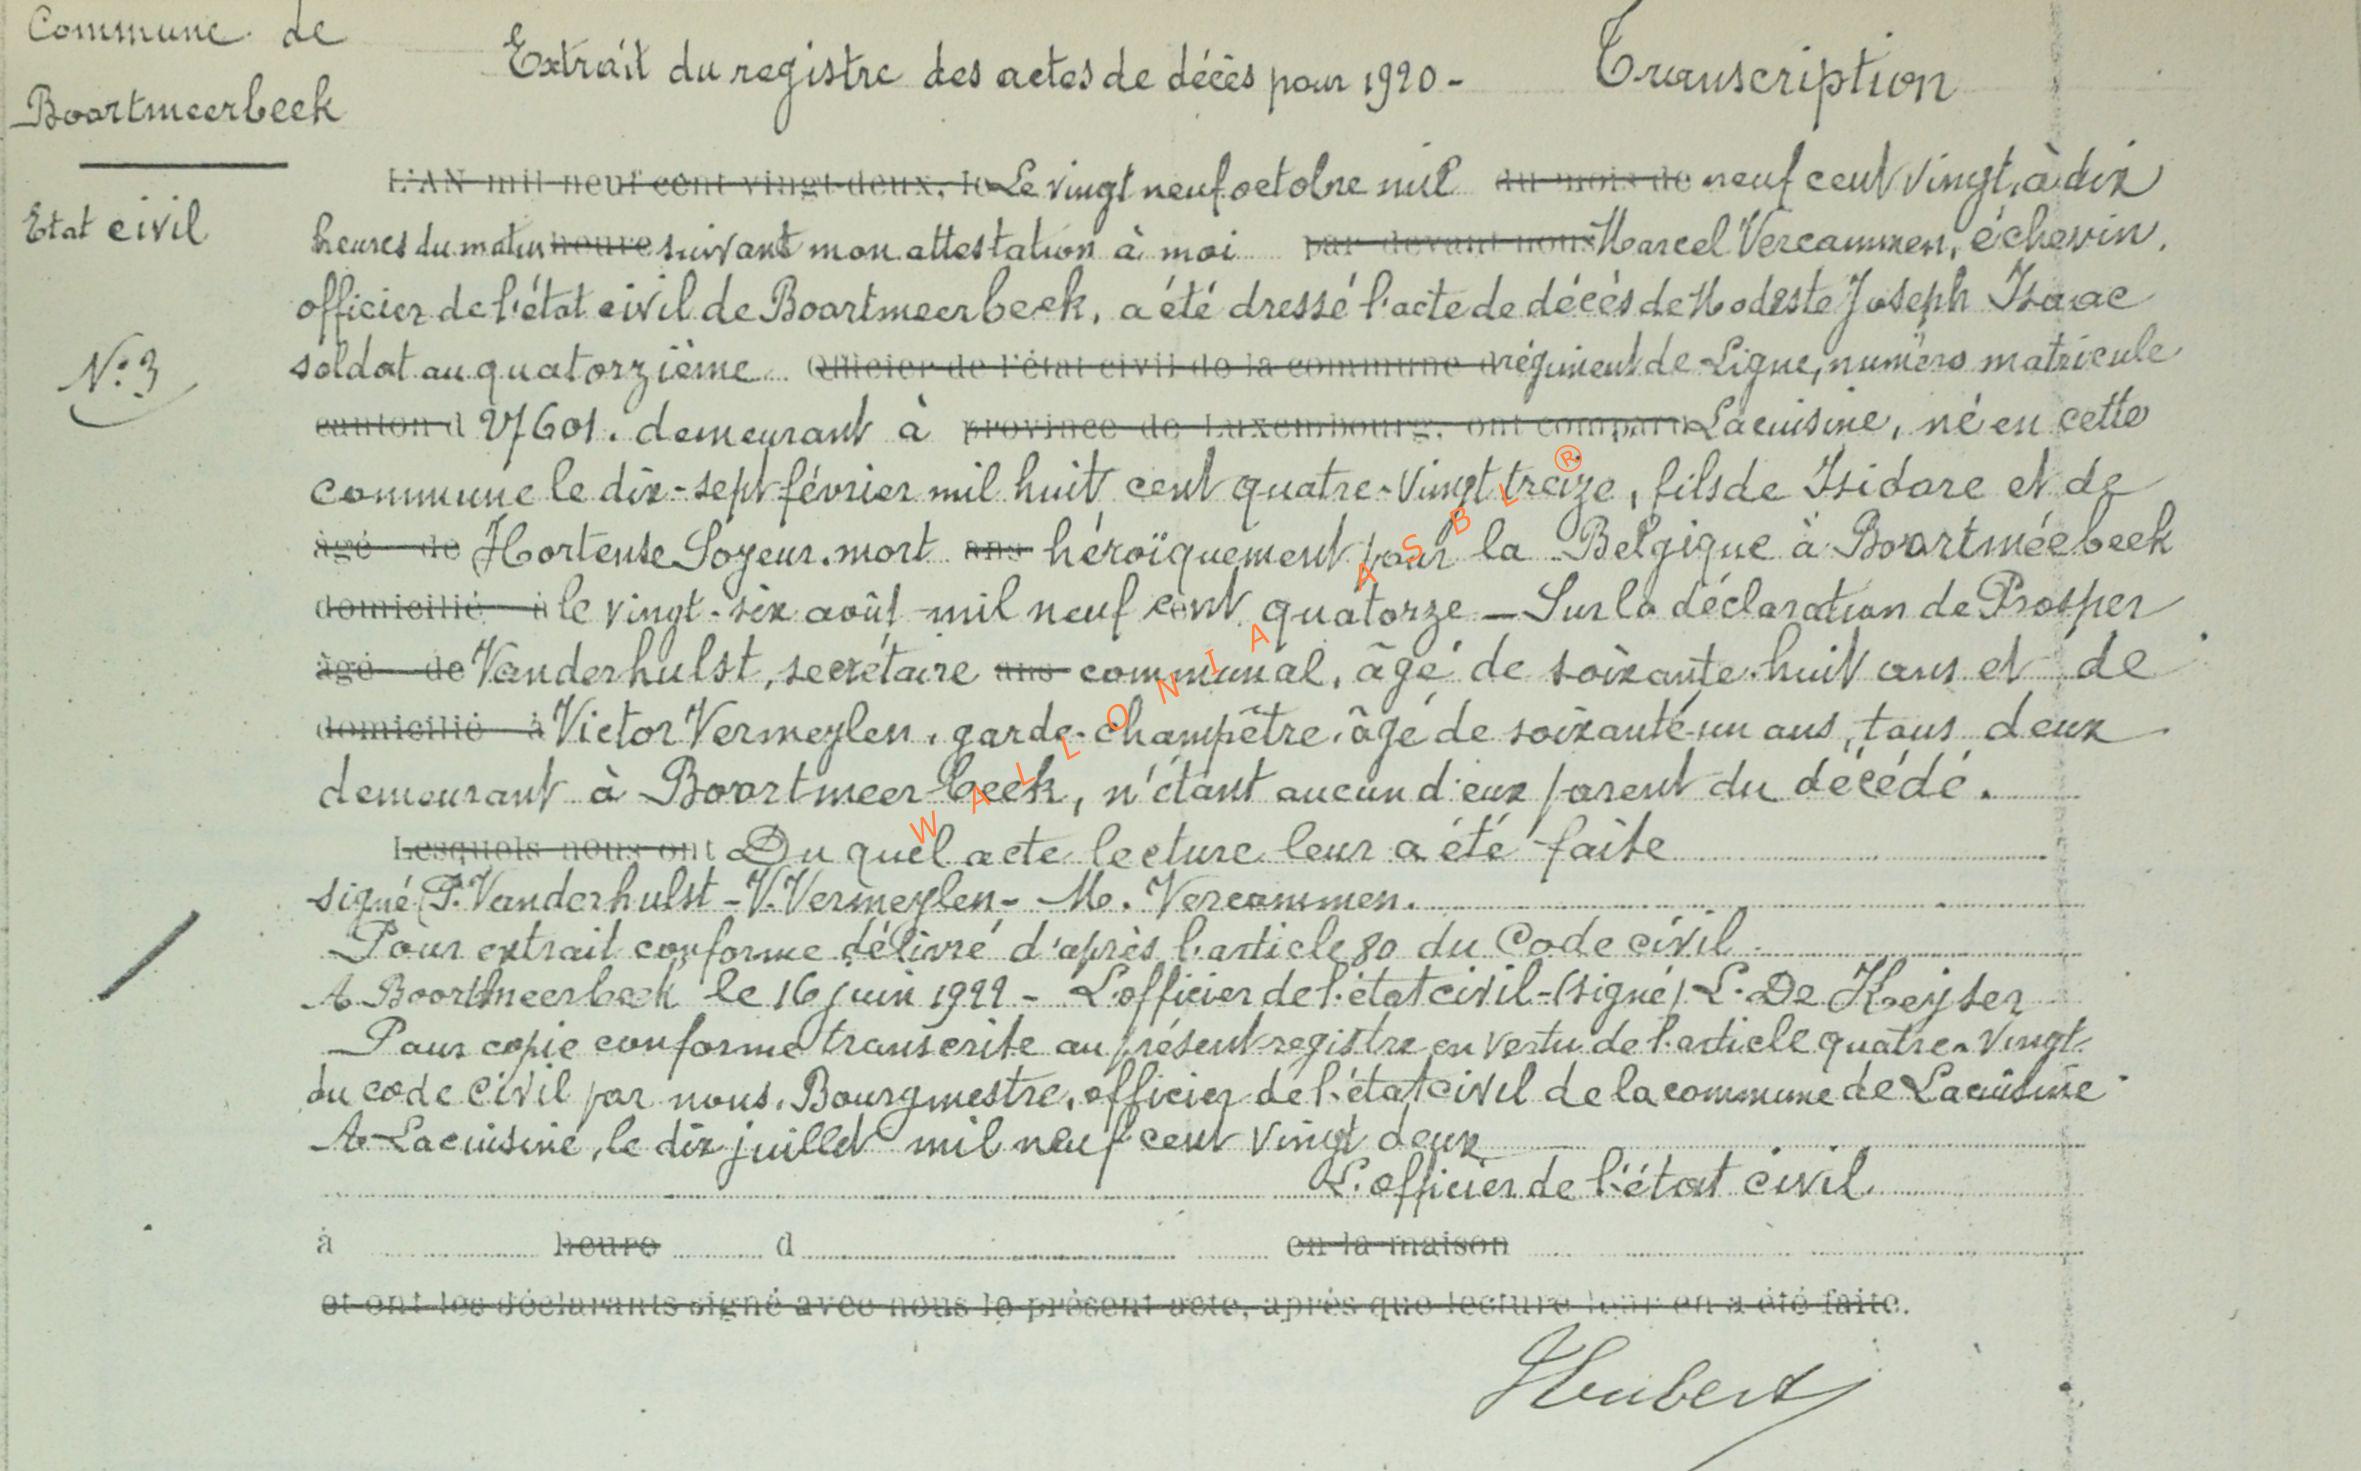 Commune de
Boortmeerbeek
Etat civil
N° 3
Extrait du registre des actes de décès pour 1920 - Transcription
L'AN mil neuf cent vingt-deux, le Le vingt neuf octobre mil du mois de neuf cent vingt, à dix
heures du matin heure suivant mon attestation à moi par devant nous Marcel Vercammen, échevin,
officier de l'état civil de Boortmeerbeek, a été dressé l'acte de décès de Modeste Joseph Isaac
soldat au quatorzième Officier de l'état civil de la commune d régiment de Ligne, numéro matricule
canton d 27601. demeurant à province de Luxembourg, ont comparu Lacuisine, né en cette
commune le dix-sept février mil huit cent quatre-vingt treize, fils de Isidore et de
âgé de Hortense Soyeur. mort ans héroïquement pour la Belgique à Boortméebeek
domicilié à le vingt-six août mil neuf cent quatorze — Sur la déclaration de Prosper
âgé de Vanderhulst, secrétaire ans communal, âgé de soixante-huit ans et de
domicilié à Victor Vermeylen, garde-champêtre, âgé de soixante-un ans, tous deux
demeurant à Boortmeerbeek, n'étant aucun d'eux parent du décédé.
Lesquels nous ont Du quel acte lecture leur a été faite
signé P. Vanderhulst - V. Vermeylen - M. Vercammen.
Pour extrait conforme délivré d'après l'article 80 du Code civil
A Boortmeerbeek le 16 juin 1922 - L'officier de l'état civil - (signé) L. De Keyser
Pour copie conforme transcrite au présent registre en vertu de l'article quatre-vingt
du code civil par nous, Bourgmestre, officier de l'état civil de la commune de Lacuisine
A Lacuisine, le dix juillet mil neuf cent vingt deux
L'officier de l'état civil
à heure d en la maison
et ont les déclarants signé avec nous le présent acte, après que lecture leur en a été faite.
Hubert
WALLONIA ASBL ®